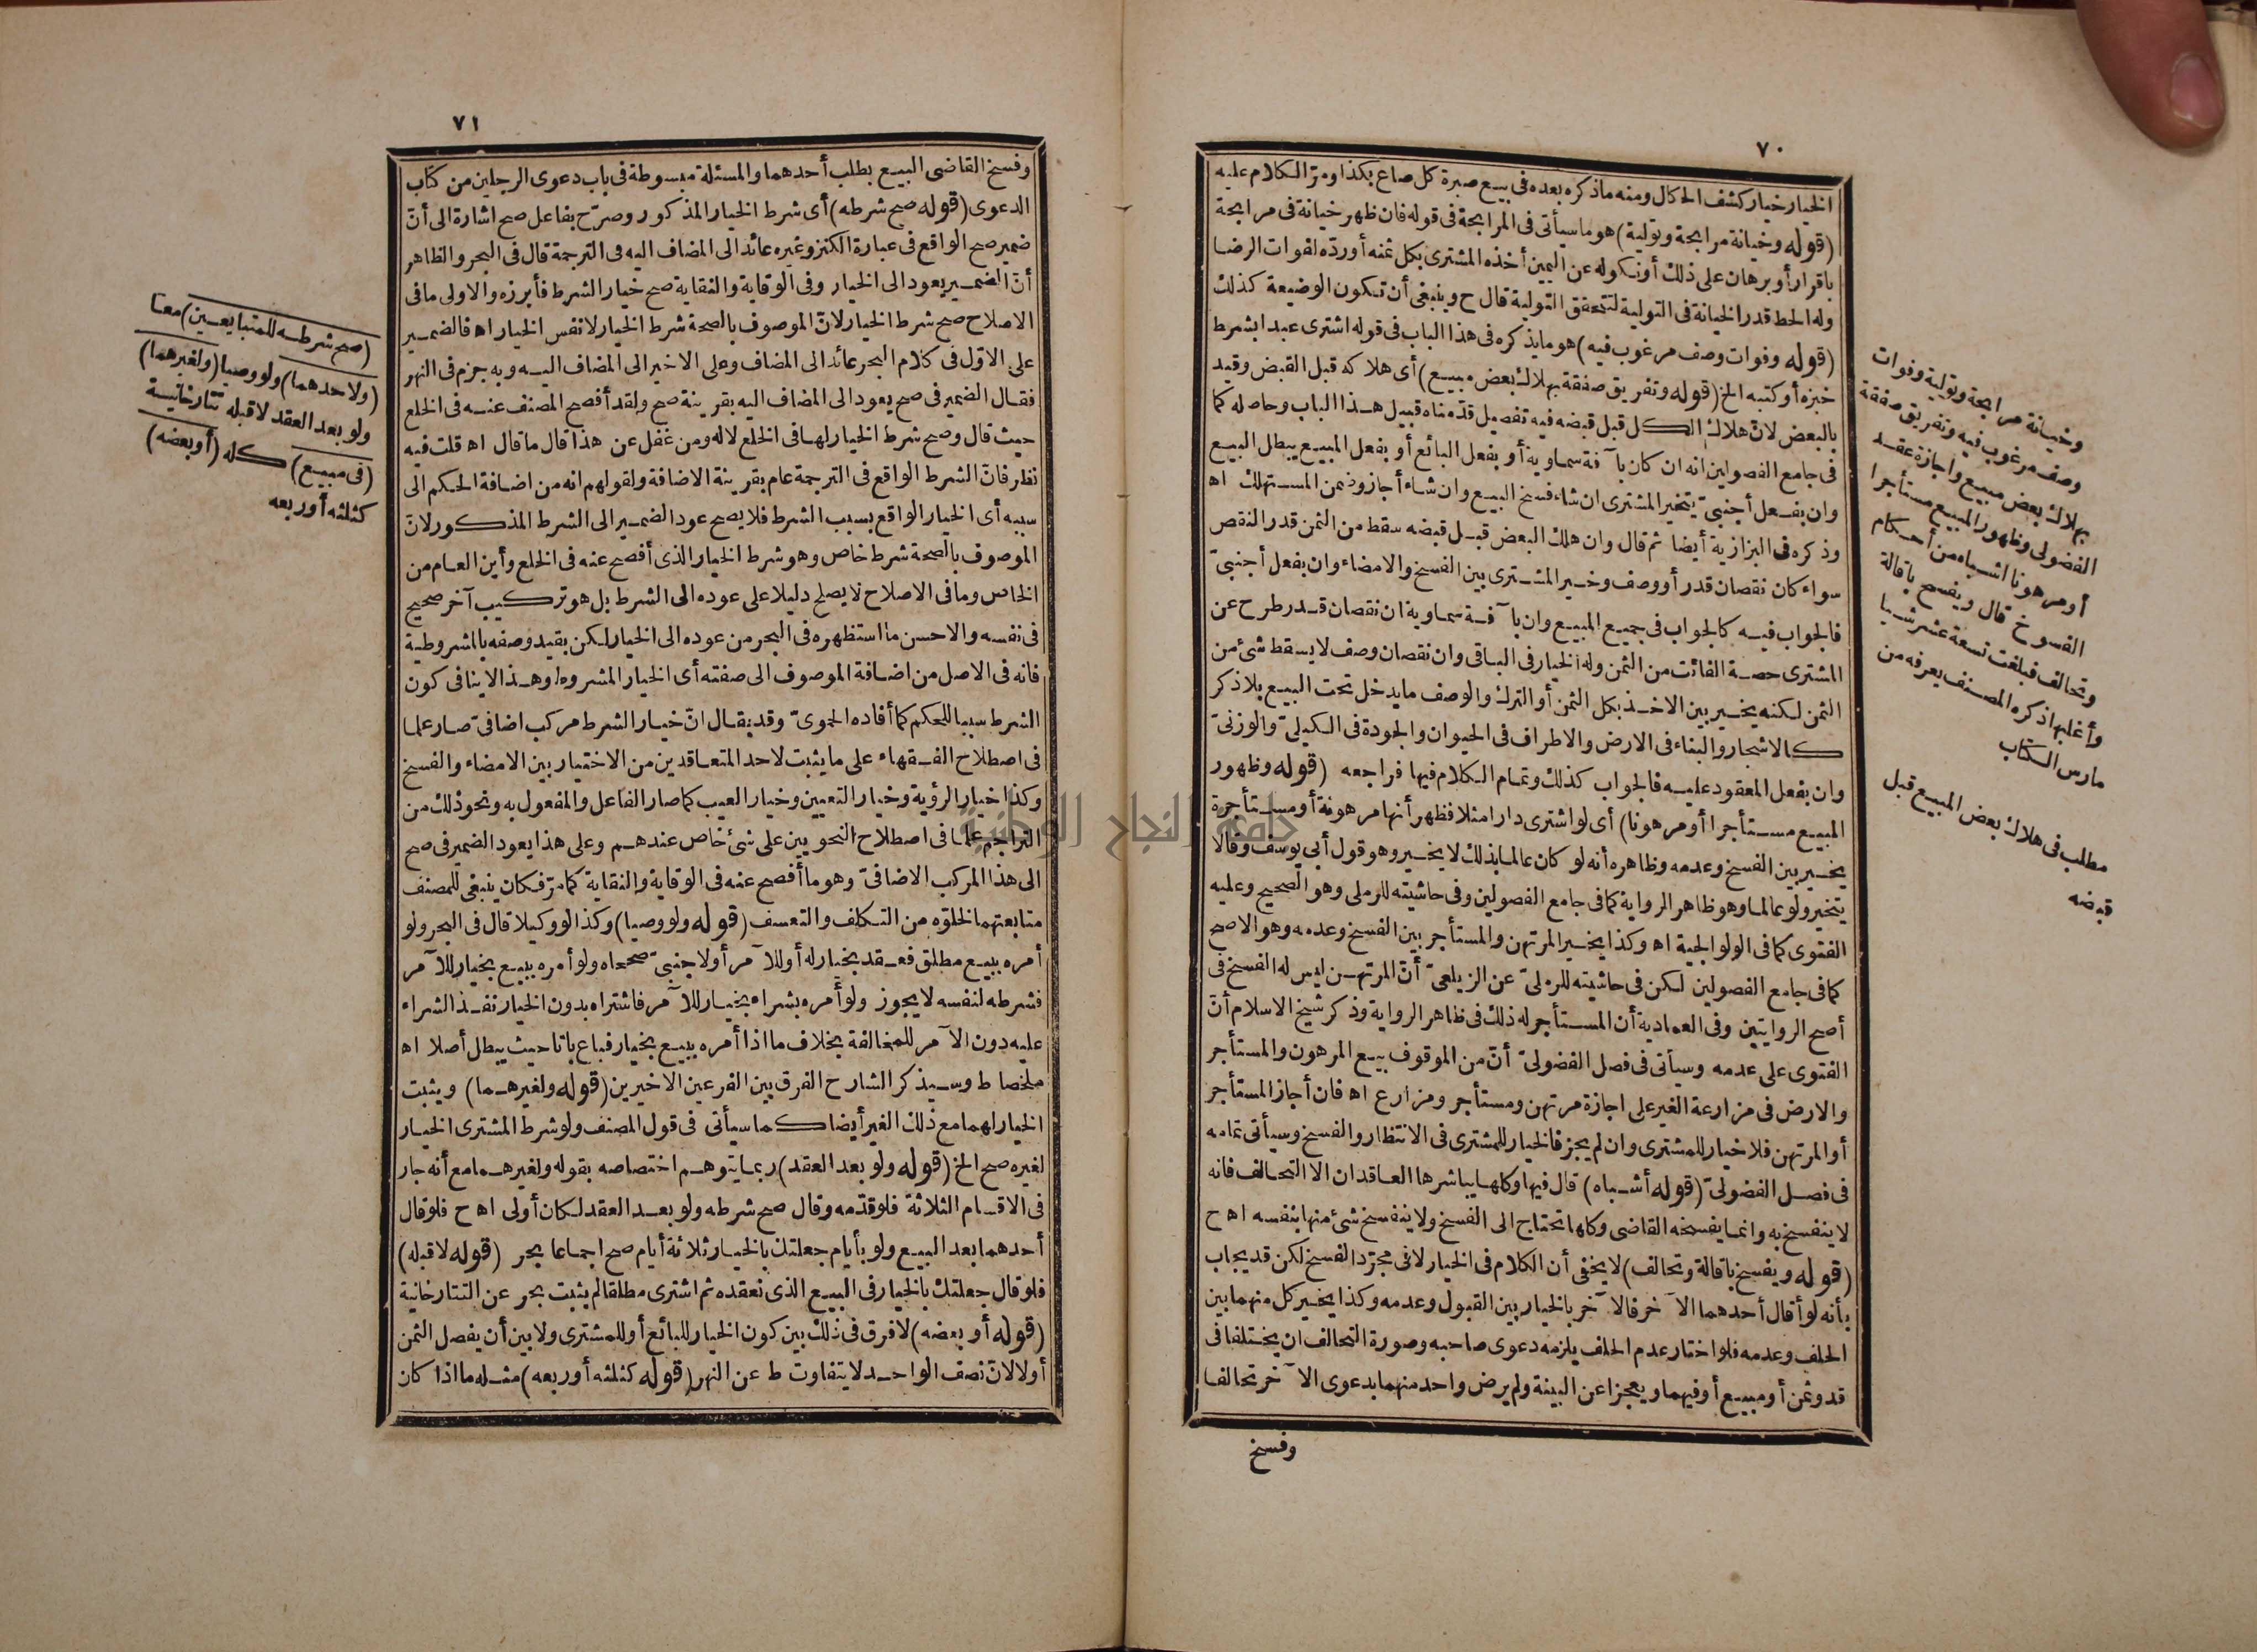 ٧٠
الخيار خيار كشف الحال ومنه ماذكره بعده فى بيع صبرة كل صاع بكذا ومرّ الكلام عليه
(قوله وخيانة مرابحة وتولية) هو ماسيأتى فى المرابحة فى قوله فان ظهر خيانة فى مرابحة
باقرار أو برهان على ذلك أو نكوله عن اليمين أخذه المشترى بكل ثمنه أو ردّه لفوات الرضا
وله الحط قدر الخيانة فى التولية لتتحقق التولية قال ح وينبغى أن تكون الوضيعة كذلك
(قوله وفوات وصف مرغوب فيه) هو مايذكره فى هذا الباب فى قوله اشترى عبدا بشرط
خبزه أو كتبه الخ (قوله وتفريق صفقة بهلاك بعض مبيع) أى هلاكه قبل القبض وقيد
بالبعض لانّ هلاك الكل قبل قبضه فيه تفصيل قدّمناه قبيل هذا الباب وحاصله كما
فى جامع الفصولين انه ان كان بآفة سماوية أو بفعل البائع أو بفعل المبيع يبطل البيع
وان بفعل أجنبىّ يتخير المشترى ان شاء فسخ البيع وان شاء أجاز وضمن المستهلك اه
وذكره فى البزازية أيضا ثم قال وان هلك البعض قبل قبضه سقط من الثمن قدر النقص
سواء كان نقصان قدر أو وصف وخير المشترى بين الفسخ والامضاء وان بفعل أجنبىّ
فالجواب فيه كالجواب فى جميع المبيع وان بآفة سماوية ان نقصان قدر طرح عن
المشترى حصة الفائت من الثمن وله الخيار فى الباقى وان نقصان وصف لا يسقط شئ من
الثمن لكنه يخير بين الاخذ بكل الثمن أو الترك والوصف مايدخل تحت البيع بلا ذكر
كالاشجار والبناء فى الارض والاطراف فى الحيوان والجودة فى الكيلىّ والوزنىّ
وان بفعل المعقود عليه فالجواب كذلك وتمام الكلام فيها فراجعه (قوله وظهور
المبيع مستأجرا أو مرهونا) أى لو اشترى دارا مثلا فظهر أنها مرهونة أو مستأجرة
يخير بين الفسخ وعدمه وظاهره أنه لو كان عالما بذلك لا يخير وهو قول أبى يوسف وقالا
يتخير ولو عالما وهو ظاهر الرواية كما فى جامع الفصولين وفى حاشيته للرملى وهو الصحيح وعليه
الفتوى كما فى الولوالجية اه وكذا يخير المرتهن والمستأجر بين الفسخ وعدمه وهو الاصح
كما فى جامع الفصولين لكن فى حاشيته للرملىّ عن الزيلعىّ أنّ المرتهن ليس له الفسخ فى
أصح الروايتين وفى العمادية أن المستأجر له ذلك فى ظاهر الرواية وذكر شيخ الاسلام أنّ
الفتوى على عدمه وسيأتى فى فصل الفضولىّ أنّ من الموقوف بيع المرهون والمستأجر
والارض فى مزارعة الغير على اجازة مرتهن ومستأجر ومزارع اه فان أجاز المستأجر
أو المرتهن فلا خيار للمشترى وان لم يجز فالخيار للمشترى فى الانتظار والفسخ وسيأتى تمامه
فى فصل الفضولىّ (قوله أشباه) قال فيها وكلها يباشرها العاقدان الا التحالف فانه
لا ينفسخ به وانما يفسخه القاضى وكلها تحتاج الى الفسخ ولا ينفسخ شئ منها بنفسه اه ح
(قوله ويفسخ باقالة وتحالف) لا يخفى أن الكلام فى الخيار لا فى مجرّد الفسخ لكن قد يجاب
بأنه لو أقال أحدهما الآخر فالآخر بالخيار بين القبول وعدمه وكذا يخير كل منهما بين
الحلف وعدمه فلو اختار عدم الحلف يلزمه دعوى صاحبه وصورة التحالف ان يختلفا فى
قدر ثمن أو مبيع أو فيهما ويعجزا عن البينة ولم يرض واحد منهما بدعوى الآخر تحالفا
وفسخ
وخيانة مرابحة وتولية وفوات
وصف مرغوب فيه وتفريق صفقة
بهلاك بعض مبيع واجازة عقد
الفضولى وظهور المبيع مستأجرا
أو مرهونا اشباه من أحكام
الفسوخ قال ويفسخ باقالة
وتحالف فبلغت تسعة عشر شيا
وأغلبها ذكره المصنف يعرفه من
مارس الكتاب
مطلب فى هلاك بعض المبيع قبل
قبضه
٧١
وفسخ القاضى البيع بطلب أحدهما والمسئلة مبسوطة فى باب دعوى الرجلين من كتاب
الدعوى (قوله صح شرطه) أى شرط الخيار المذكور وصرّح بفاعل صح اشارة الى أنّ
ضمير صح الواقع فى عبارة الكنز وغيره عائد الى المضاف اليه فى الترجمة قال فى البحر والظاهر
أنّ الضمير يعود الى الخيار وفى الوقاية والنقاية صح خيار الشرط فأبرزه والاولى ما فى
الاصلاح صح شرط الخيار لانّ الموصوف بالصحة شرط الخيار لا نفس الخيار اه فالضمير
على الاوّل فى كلام البحر عائد الى المضاف وعلى الاخير الى المضاف اليه وبه جزم فى النهر
فقال الضمير فى صح يعود الى المضاف اليه بقرينة صح ولقد أفصح المصنف عنه فى الخلع
حيث قال وصح شرط الخيار لها فى الخلع لا له ومن غفل عن هذا قال ما قال اه قلت فيه
نظر فانّ الشرط الواقع فى الترجمة عام بقرينة الاضافة ولقولهم انه من اضافة الحكم الى
سببه أى الخيار الواقع بسبب الشرط فلا يصح عود الضمير الى الشرط المذكور لانّ
الموصوف بالصحة شرط خاص وهو شرط الخيار الذى أفصح عنه فى الخلع وأين العام من
الخاص وما فى الاصلاح لا يصلح دليلا على عوده الى الشرط بل هو تركيب آخر صحيح
فى نفسه والاحسن ما استظهره فى البحر من عوده الى الخيار لكن بقيد وصفه بالمشروطية
فانه فى الاصل من اضافة الموصوف الى صفته أى الخيار المشروط وهذا لا ينافى كون
الشرط سببا للحكم كما أفاده الحموىّ وقد يقال انّ خيار الشرط مركب اضافىّ صار علما
فى اصطلاح الفقهاء على ما يثبت لاحد المتعاقدين من الاختيار بين الامضاء والفسخ
وكذا خيار الرؤية وخيار التعيين وخيار العيب كما صار الفاعل والمفعول به ونحو ذلك من
التراجم علما فى اصطلاح النحويين على شئ خاص عندهم وعلى هذا يعود الضمير فى صح
الى هذا المركب الاضافىّ وهو ما أفصح عنه فى الوقاية والنقاية كما مرّ فكان ينبغى للمصنف
متابعتهما لخلوّه من التكلف والتعسف (قوله ولو وصيا) وكذا لو وكيلا قال فى البحر ولو
أمره ببيع مطلق فعقد بخيار له أو للآمر أو لاجنبىّ صح اه ولو أمره ببيع بخيار للآمر
فشرطه لنفسه لا يجوز ولو أمره بشراء بخيار للآمر فاشتراه بدون الخيار نفذ الشراء
عليه دون الآمر للمخالفة بخلاف ما اذا أمره ببيع بخيار فباع باتا حيث يبطل أصلا اه
ملخصا ط وسيذكر الشارح الفرق بين الفرعين الاخيرين (قوله ولغيرهما) ويثبت
الخيار لهما مع ذلك الغير أيضا كما سيأتى فى قول المصنف ولو شرط المشترى الخيار
لغيره صح الخ (قوله ولو بعد العقد) ربما يتوهم اختصاصه بقوله ولغيرهما مع أنه جار
فى الاقسام الثلاثة فلو قدّمه وقال صح شرطه ولو بعد العقد لكان أولى اه ح فلو قال
أحدهما بعد البيع ولو بأيام جعلتك بالخيار ثلاثة أيام صح اجماعا بحر (قوله لا قبله)
فلو قال جعلتك بالخيار فى البيع الذى نعقده ثم اشترى مطلقا لم يثبت بحر عن التتارخانية
(قوله أو بعضه) لا فرق فى ذلك بين كون الخيار للبائع أو للمشترى ولا بين أن يفصل الثمن
أو لا لانّ نصف الواحد لا يتفاوت ط عن النهر (قوله كثلثه أو ربعه) مثله ما اذا كان
(صح شرطه للمتبايعين) معا
(ولاحدهما) ولو وصيا (ولغيرهما)
ولو بعد العقد لا قبله تتارخانية
(فى مبيع) كله (أو بعضه)
كثلثه أو ربعه
جامعة النجاح الوطنية